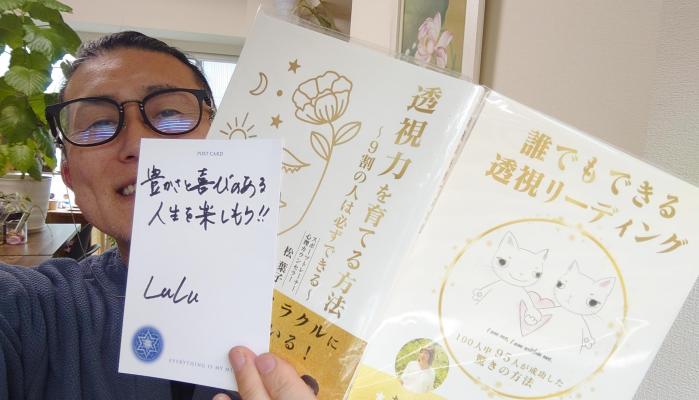 POST CARD
豊かさと喜びのある
人生を楽しもう!!
LuLu
EVERYTHING IS MY
透視力を育てる方法
〜9割の人は必ずできる〜
松 葉子
ラクルに
いる!
誰でもできる
透視リーディング
100人中95人が成功した
驚きの方法